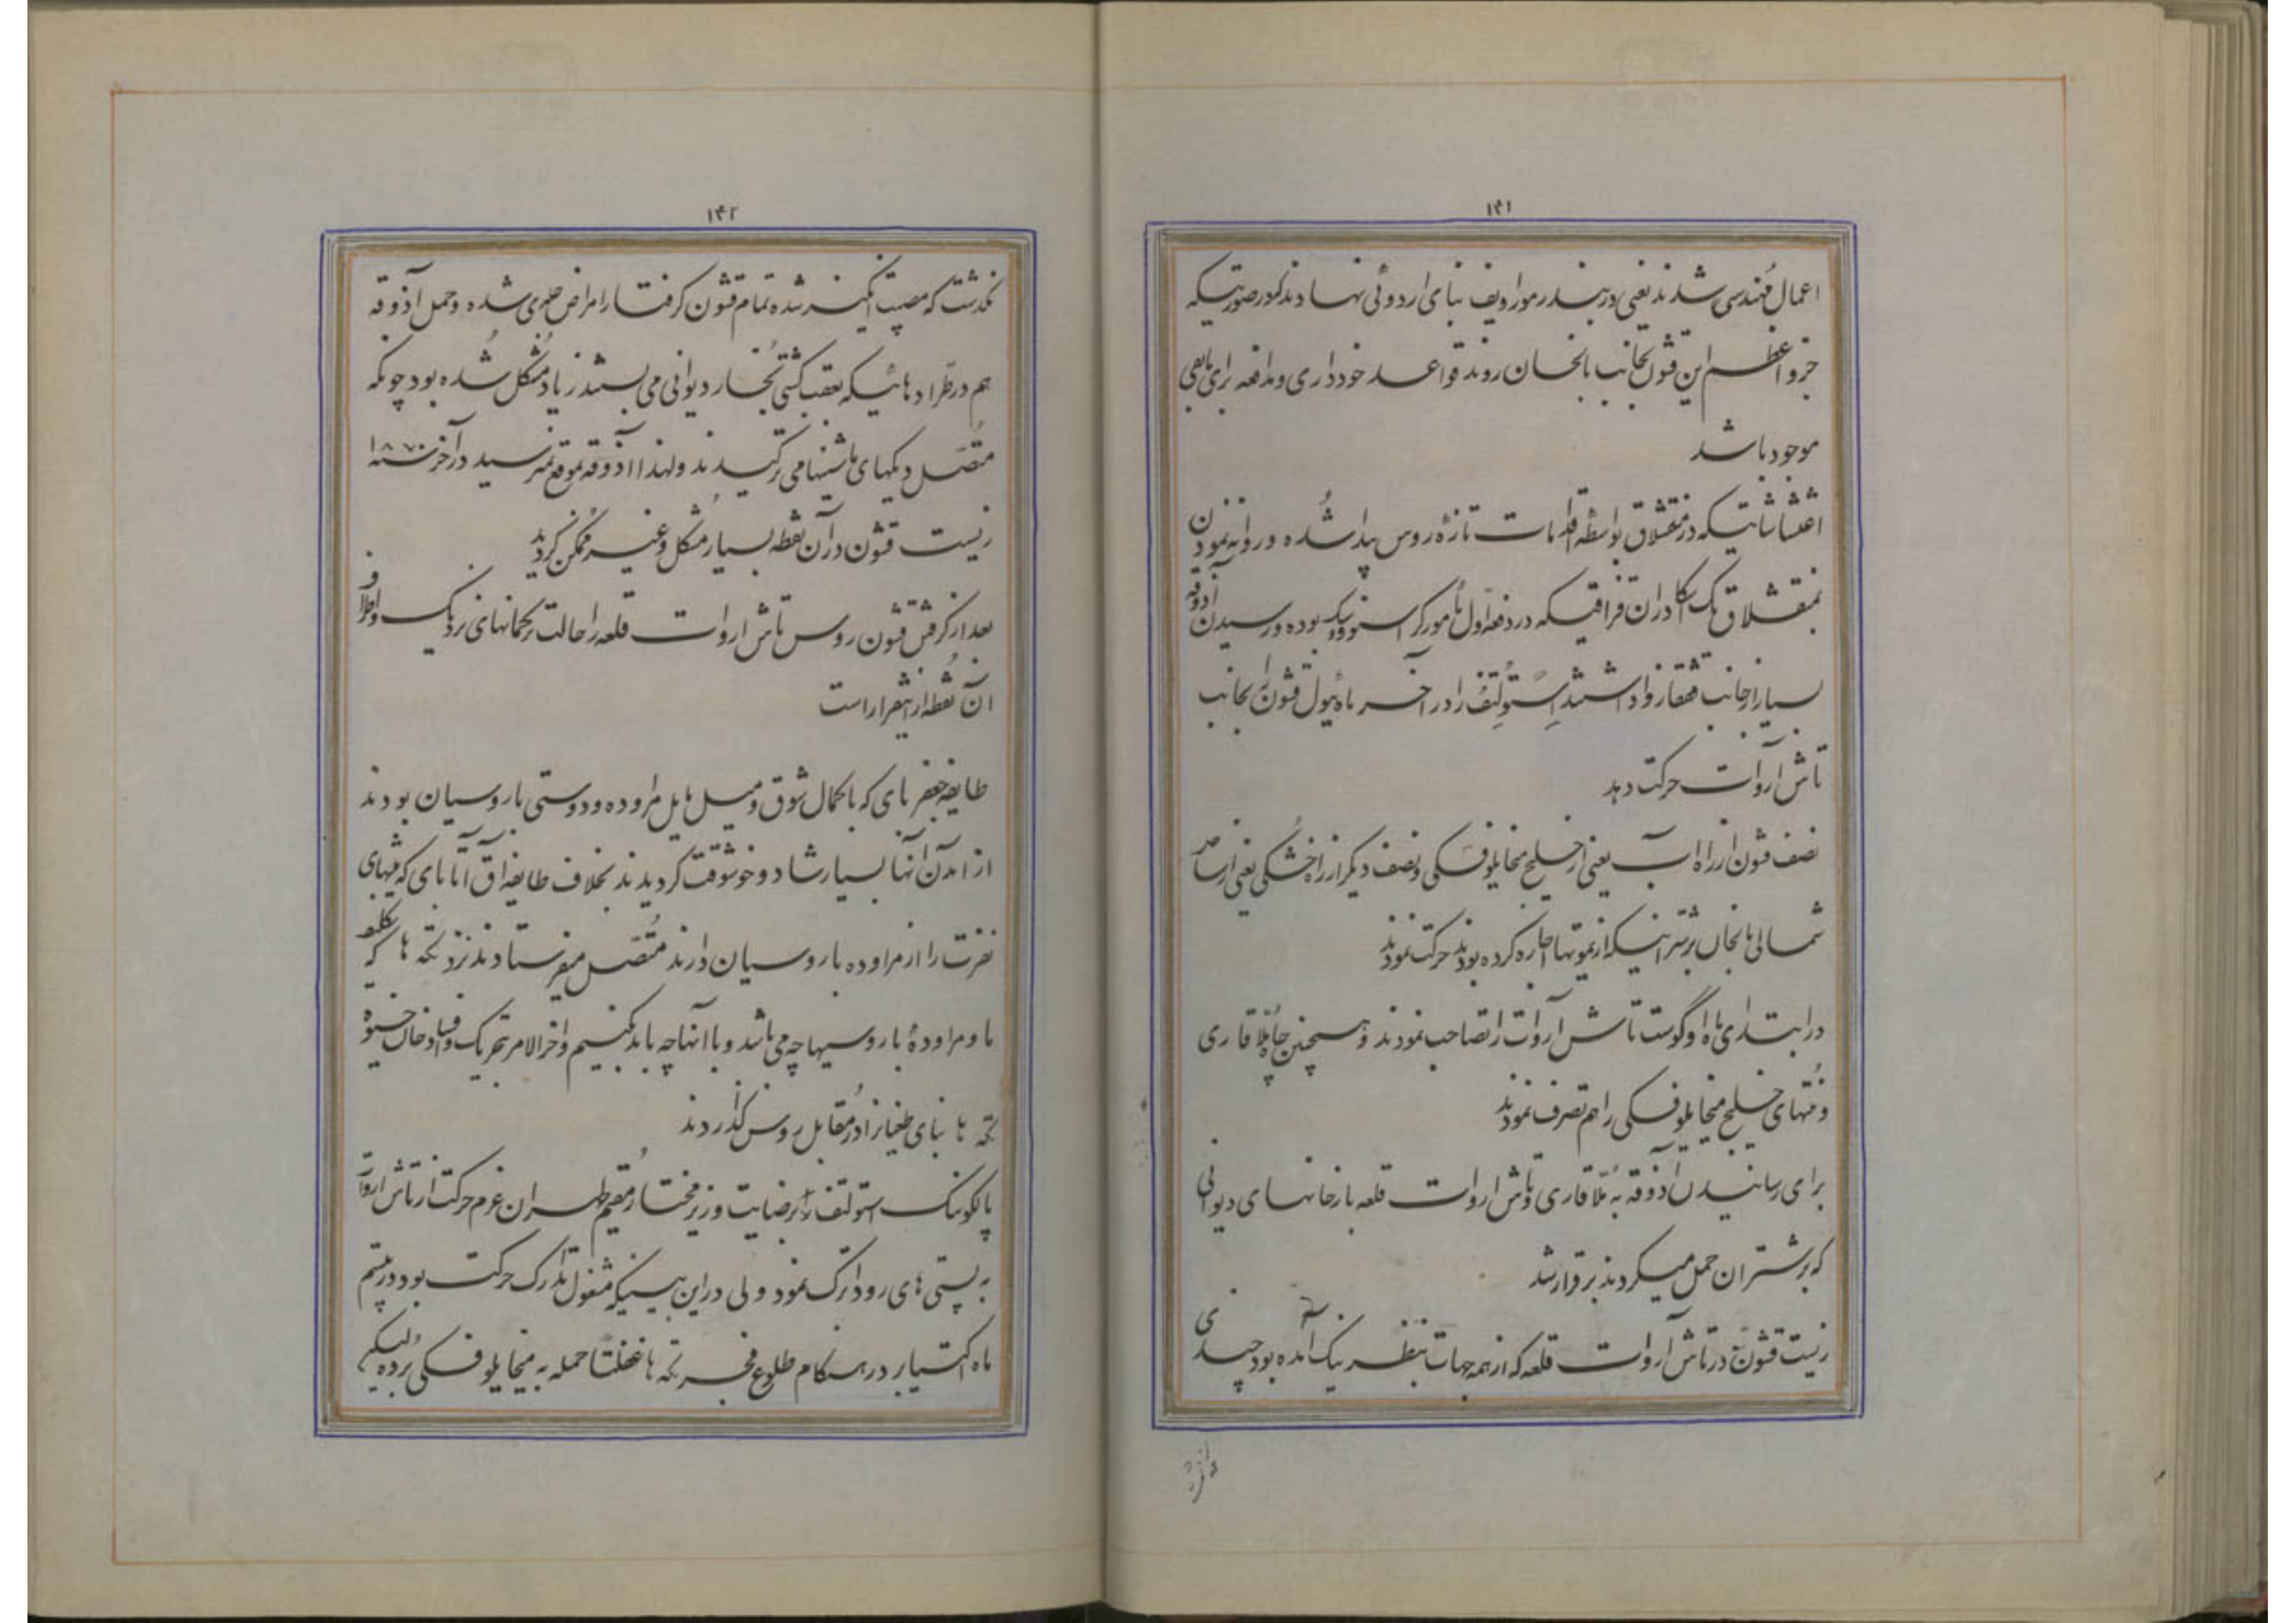 ۱۴۱
اعمال مُهندسی شدند یعنی در بندر مورا ویف بنای اردوئی نهادند که در صورتیکه
جزو اعظم این قشون بجانب بالخان روند قواعد خودداری و مدافعه برای باقی
موجود باشد
اغتشاشاتیکه در منقشلاق بواسطه اقدامات تازهٔ روس پیدا شُده و روانه نمودن
بمنقشلاق یک تکا دران قزاقیکه در دفعه اول مأمور کراسنوودیک بوده و رسیدن آذوقه
بسیار از جانب قفقاز وا داشتند اِستولِتُف را در آخر ماه ئیول قشون را بجانب
تاش اروات حرکت دهد
نصف قشون از راه آب یعنی از خلیج میخایلوفسکی و نصف دیگر از راه خُشکی یعنی از ساحل
شمالی بالخان بر شترانیکه از یموتها اجاره کرده بودند حرکت نمودند
در ابتدای ماه اوگوست تاش آروات را تصاحب نمودند و همچنین چاه مُلّا قاری
و مُنتهای خلیج میخایلوفسکی را هم تصرف نمودند
برای رسانیدن آذوقه به مُلّا قاری و تاش اروات قلعه بارخانهای دیوانی
که بر شتران حمل میکردند برقرار شد
زیست قشون در تاش آروات قلعه که از همه جهات بنظر نیک آمده بود چندی
۱۴۲
نگذشت که مصیبت انگیز شده تمام قشون گرفتار امراض جلدی شده و حمل آذوقه
هم در طرّاد هائیکه بعقب کشتی بُخار دیوانی می بستند زیاد مُشکل شُده بود چونکه
متّصل دیکهای ماشینها می ترکیدند و لهذا آذوقه بموقع نمیرسید در آخر سنه ۱۸۷۰
زیست قشون در آن نقطه بسیار مُشکل و غیر مُمکن گردید
بعد از گرفتن قشون روس تاش اروات قلعه را حالت ترکمانهای نزدیک و اطراف
آن نُقطه ازینقرار است
طایفه جعفر بای که با کمال شوق و میل مایل مراوده و دوستی با روسیان بودند
از آمدن آنها بسیار شاد و خوشوقت گردیدند بخلاف طایفه آق آتابای که منتهای
نفرت را از مراوده با روسیان دارند مُتّصل میفرستادند نزد تکه ها که تکلیف
ما و مراودهٔ با روسیها چه می باشد و با آنها چه باید بکنیم و آخر الامر بتحریک و فساد خان خیوه
تکه ها بنای طغیان را در مُقابل روس گذاردند
پالکونک استولتف را برضایت وزیر مختار مُقیم طهران عزم حرکت از تاش اروات
به پستی های رود اترک نمود ولی در این بینیکه مشغول تدارک حرکت بود در بیستم
ماه اکتیابر در هنگام طلوع فجر تکه ها غفلتاً حمله به میخایلوفسکی برده لیکن